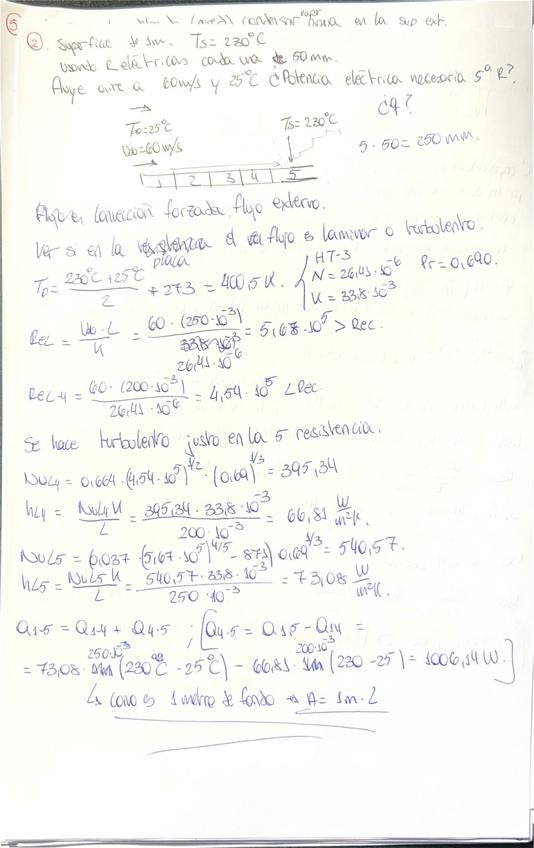 5
h (medi) condensar vapor en la sup ext.
2. Superficie de 1m. Ts = 230°C
usando R eléctricas cada una de 50mm.
Fluye aire a 60m/s y 25°C ¿Potencia eléctrica necesaria 5ª R?
¿q?
T∞=25°C
U∞=60m/s
Ts=230°C
5·50=250mm.
1 2 3 4 5
Flujo en convección forzada flujo externo.
Ver si en la placa el flujo es laminar o turbulento.
To = (230°C + 25°C)/2 + 273 = 400,5K. { HT-3 N = 26,41·10^-6 K = 33,8·10^-3 Pr = 0,690.
ReL = U∞·L/N = 60·(250·10^-3)/26,41·10^-6 = 5,67·10^5 > Rec.
ReL4 = 60·(200·10^-3)/26,41·10^-6 = 4,54·10^5 < Rec.
Se hace turbulento justo en la 5 resistencia.
NuL4 = 0,664·(4,54·10^5)^1/2·(0,69)^1/3 = 395,34
hL4 = NuL4 K/L = 395,34·33,8·10^-3/200·10^-3 = 66,81 W/m²K.
NuL5 = (0,037·(5,67·10^5)^4/5 - 871) 0,69^1/3 = 540,57.
hL5 = NuL5 K/L = 540,57·33,8·10^-3/250·10^-3 = 73,08 W/m²K.
Q1-5 = Q1-4 + Q4-5 ; [Q4-5 = Q1,5 - Q1,4 =
= 73,08·250·10^-3 (230°C - 25°C) - 66,81·200·10^-3 (230 - 25) = 1006,14W.]
↳ como es 1 metro de fondo → A = 1m·L